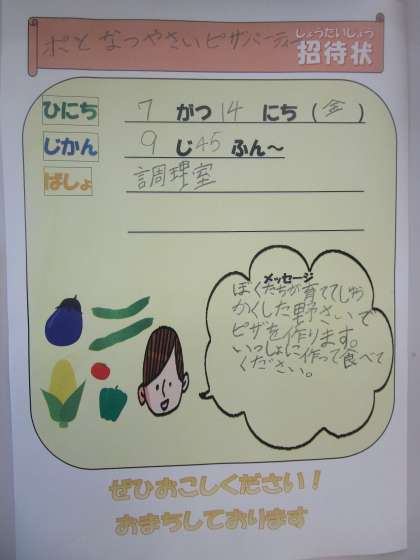 しょうたいじょう
ポとなつやさいピザパーティー招待状
ひにち 7がつ14にち(金)
じかん 9じ45ふん〜
ばしょ 調理室
メッセージ
ぼくたちが育ててしゅう
かくした野さいで
ピザを作ります。
いっしょに作って食べて
ください。
ぜひおこしください!
おまちしております